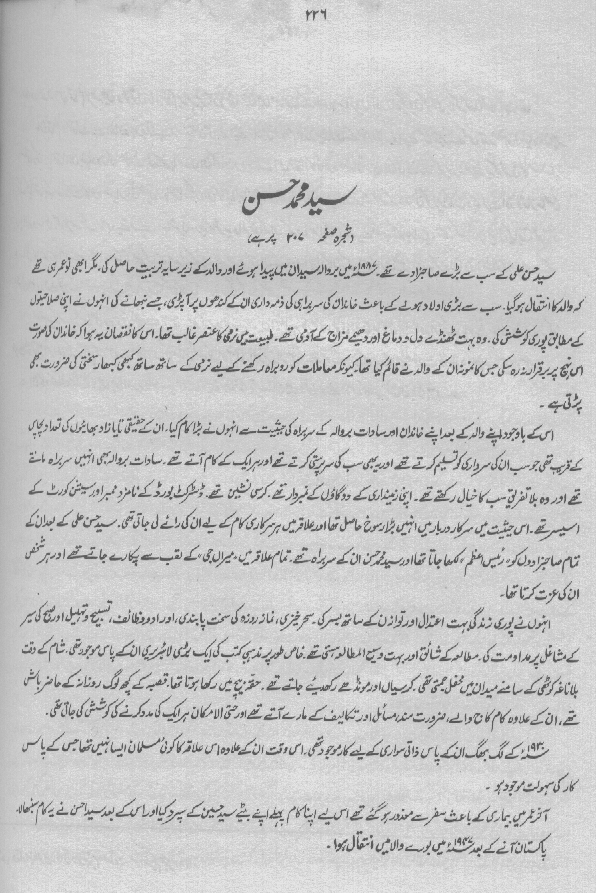 ۲۲۶
سید محمد حسن
(شجرہ صفحہ ۲۰۷ پر ہے)
سید حسن علی کے سب سے بڑے صاحبزادے تھے۔ ۱۸۸۷ء میں بروالہ سیدان میں پیدا ہوئے اور والد کے زیر سایہ تربیت حاصل کی، مگر ابھی نوعمری تھے
کہ والد کا انتقال ہو گیا۔ سب سے بڑی اولاد ہونے کے باعث خاندان کی سربراہی کی ذمہ داری ان کے کندھوں پر آپڑی، جسے نبھانے کی انہوں نے اپنی صلاحیتوں
کے مطابق پوری کوشش کی، وہ بہت ٹھنڈے دل و دماغ اور دھیمے مزاج کے آدمی تھے۔ طبیعت میں نرمی کا عنصر غالب تھا۔ اس کا نقصان یہ ہوا کہ خاندان کی صورت
اس نہج پر برقرار نہ رہ سکی جس کا نمونہ ان کے والد نے قائم کیا تھا۔ کیونکہ معاملات کو روبراہ رکھنے کے لیے نرمی کے ساتھ ساتھ کبھی کبھار سختی کی ضرورت بھی
پڑتی ہے۔
اس کے باوجود اپنے والد کے بعد اپنے خاندان اور سادات بروالہ کے سربراہ کی حیثیت سے انہوں نے بڑا کام کیا۔ ان کے حقیقی تایا زاد بھائیوں کی تعداد پچاس
کے قریب تھی جو سب ان کی سرداری کو تسلیم کرتے تھے اور یہ بھی سب کی سرپرستی کرتے تھے اور ہر ایک کے کام آتے تھے۔ سادات بروالہ بھی انہیں سربراہ مانتے
تھے اور وہ بلا تفریق سب کا خیال رکھتے تھے۔ اپنی زمینداری کے دو گاؤں کے نمبردار تھے۔ کرسی نشین تھے۔ ڈسٹرکٹ بورڈ کے نامزد ممبر اور سیشن کورٹ کے
اسیسر تھے۔ اس حیثیت میں سرکار دربار میں انہیں بڑا رسوخ حاصل تھا اور علاقہ میں ہر سرکاری کام کے لیے ان کی رائے لی جاتی تھی۔ سید حسن علی کے بعد ان کے
تمام صاحبزادوں کو "رئیس اعظم" لکھا جاتا تھا اور سید محمد حسن ان کے سربراہ تھے۔ تمام علاقہ میں "میراں جی" کے لقب سے پکارے جاتے تھے اور ہر شخص
ان کی عزت کرتا تھا۔
انہوں نے پوری زندگی بہت اعتدال اور توازن کے ساتھ بسر کی۔ سحر خیزی، نماز روزہ کی سخت پابندی، اور اد و وظائف، تسبیح و تہلیل اور صبح کی سیر
کے مشاغل پر مداومت کی۔ مطالعہ کے شائق اور بہت وسیع المطالعہ ہستی تھے۔ خاص طور پر مذہبی کتب کی ایک بڑی لائبریری ان کے پاس موجود تھی۔ شام کے وقت
بلاناغہ کوٹھی کے سامنے میدان میں محفل جمتی تھی۔ کرسیاں اور مونڈھے رکھ دیئے جاتے تھے۔ حقہ بیچ میں رکھا ہوتا تھا۔ قصبہ کے کچھ لوگ روزانہ کے حاضر باش
تھے، ان کے علاوہ کام کاج والے، ضرورت مند، مسائل اور تکالیف کے مارے آتے تھے اور حتی الامکان ہر ایک کی مدد کرنے کی کوشش کی جاتی تھی۔
۱۹۲۰ء کے لگ بھگ ان کے پاس ذاتی سواری کے لیے کار موجود تھی۔ اس وقت ان کے علاوہ اس علاقہ کا کوئی مسلمان ایسا نہیں تھا جس کے پاس
کار کی سہولت موجود ہو۔
آخر عمر میں بیماری کے باعث سفر سے معذور ہو گئے تھے اس لیے اپنا کام پہلے اپنے بیٹے سید حسین کے سپرد کیا اور اس کے بعد سید احسن نے یہ کام سنبھالا۔
پاکستان آنے کے بعد ۱۹۴۷ء میں بورے والا میں انتقال ہوا۔